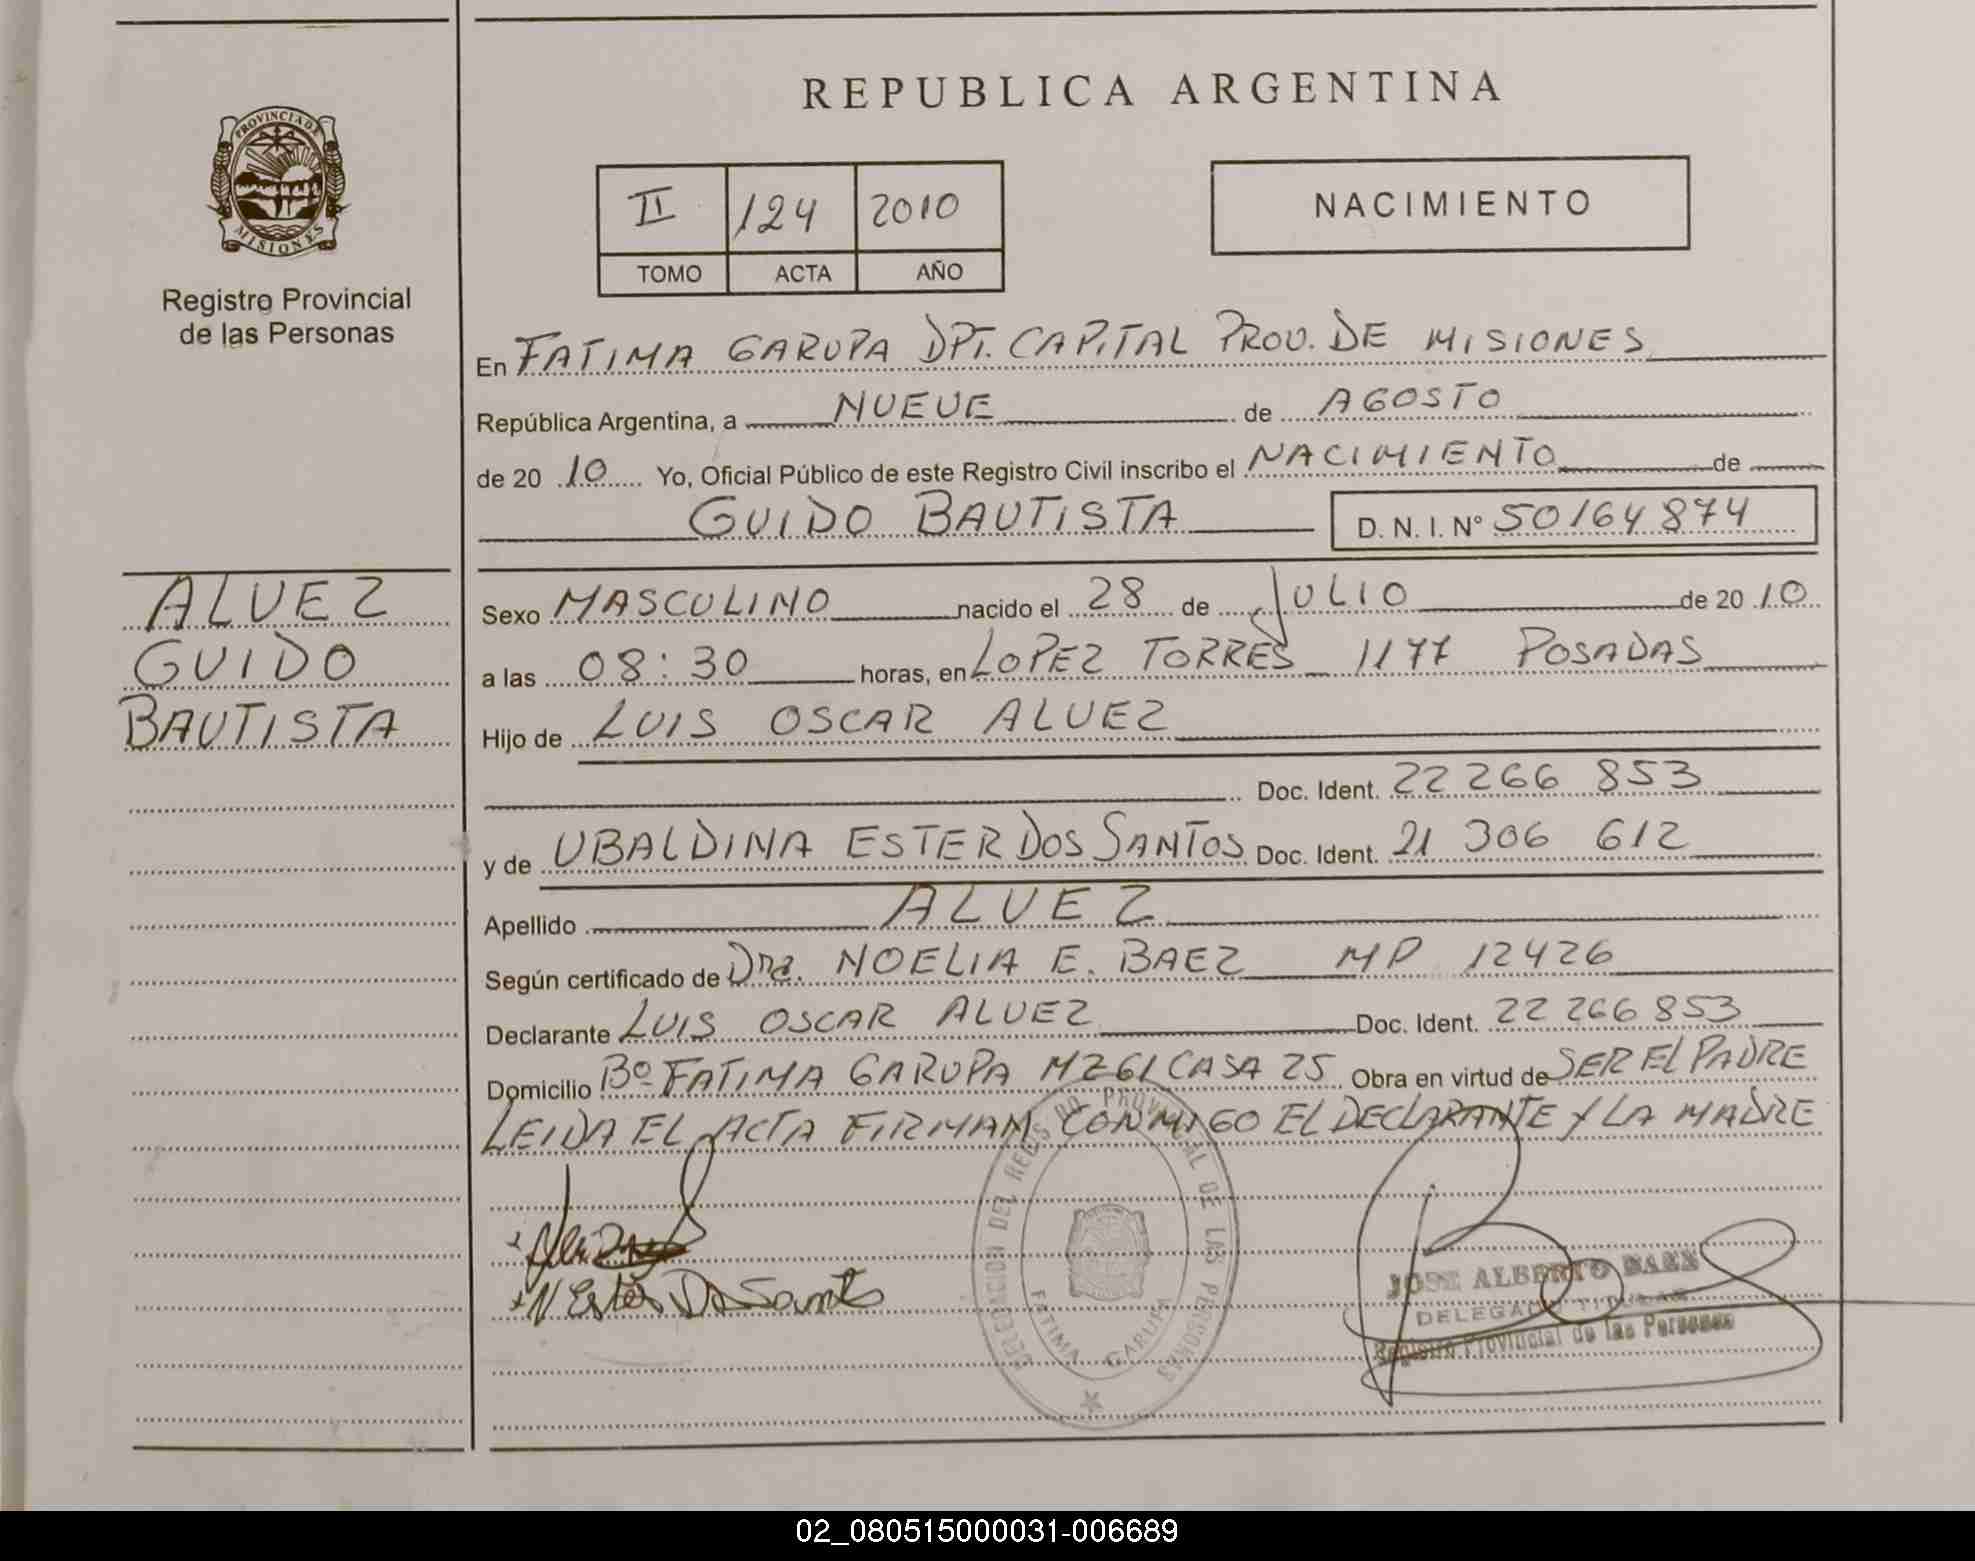 REPUBLICA ARGENTINA
PROVINCIA DE
MISIONES
Registro Provincial
de las Personas
II 124 2010
TOMO ACTA AÑO
NACIMIENTO
En FATIMA GARUPA DPT. CAPITAL PROV. DE MISIONES
República Argentina, a NUEVE de AGOSTO
de 20 10 Yo, Oficial Público de este Registro Civil inscribo el NACIMIENTO de
GUIDO BAUTISTA D. N. I. N° 50164874
ALVEZ
GUIDO
BAUTISTA
Sexo MASCULINO nacido el 28 de JULIO de 20 10
a las 08:30 horas, en LOPEZ TORRES 1177 POSADAS
Hijo de LUIS OSCAR ALVEZ
Doc. Ident. 22 266 853
y de UBALDINA ESTER DOS SANTOS Doc. Ident. 21 306 612
Apellido ALVEZ
Según certificado de Dra. NOELIA E. BAEZ MP 12426
Declarante LUIS OSCAR ALVEZ Doc. Ident. 22 266 853
Domicilio Bº FATIMA GARUPA MZ 61 CASA 25 Obra en virtud de SER EL PADRE
LEIDA EL ACTA FIRMAN CONMIGO EL DECLARANTE Y LA MADRE
DELEGACION DEL REGISTRO PROVINCIAL DE LAS PERSONAS
FATIMA GARUPA
JOSE ALBERTO BAEZ
DELEGADO TITULAR
Registro Provincial de las Personas
02_080515000031-006689